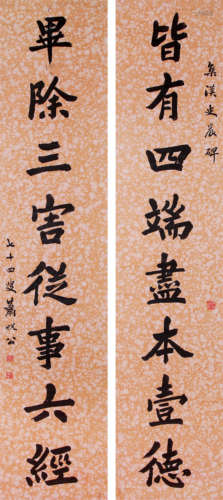 集漢史晨碑
皆有四端盡本壹德
畢除三害從事六經
七十四叟蕭蛻公